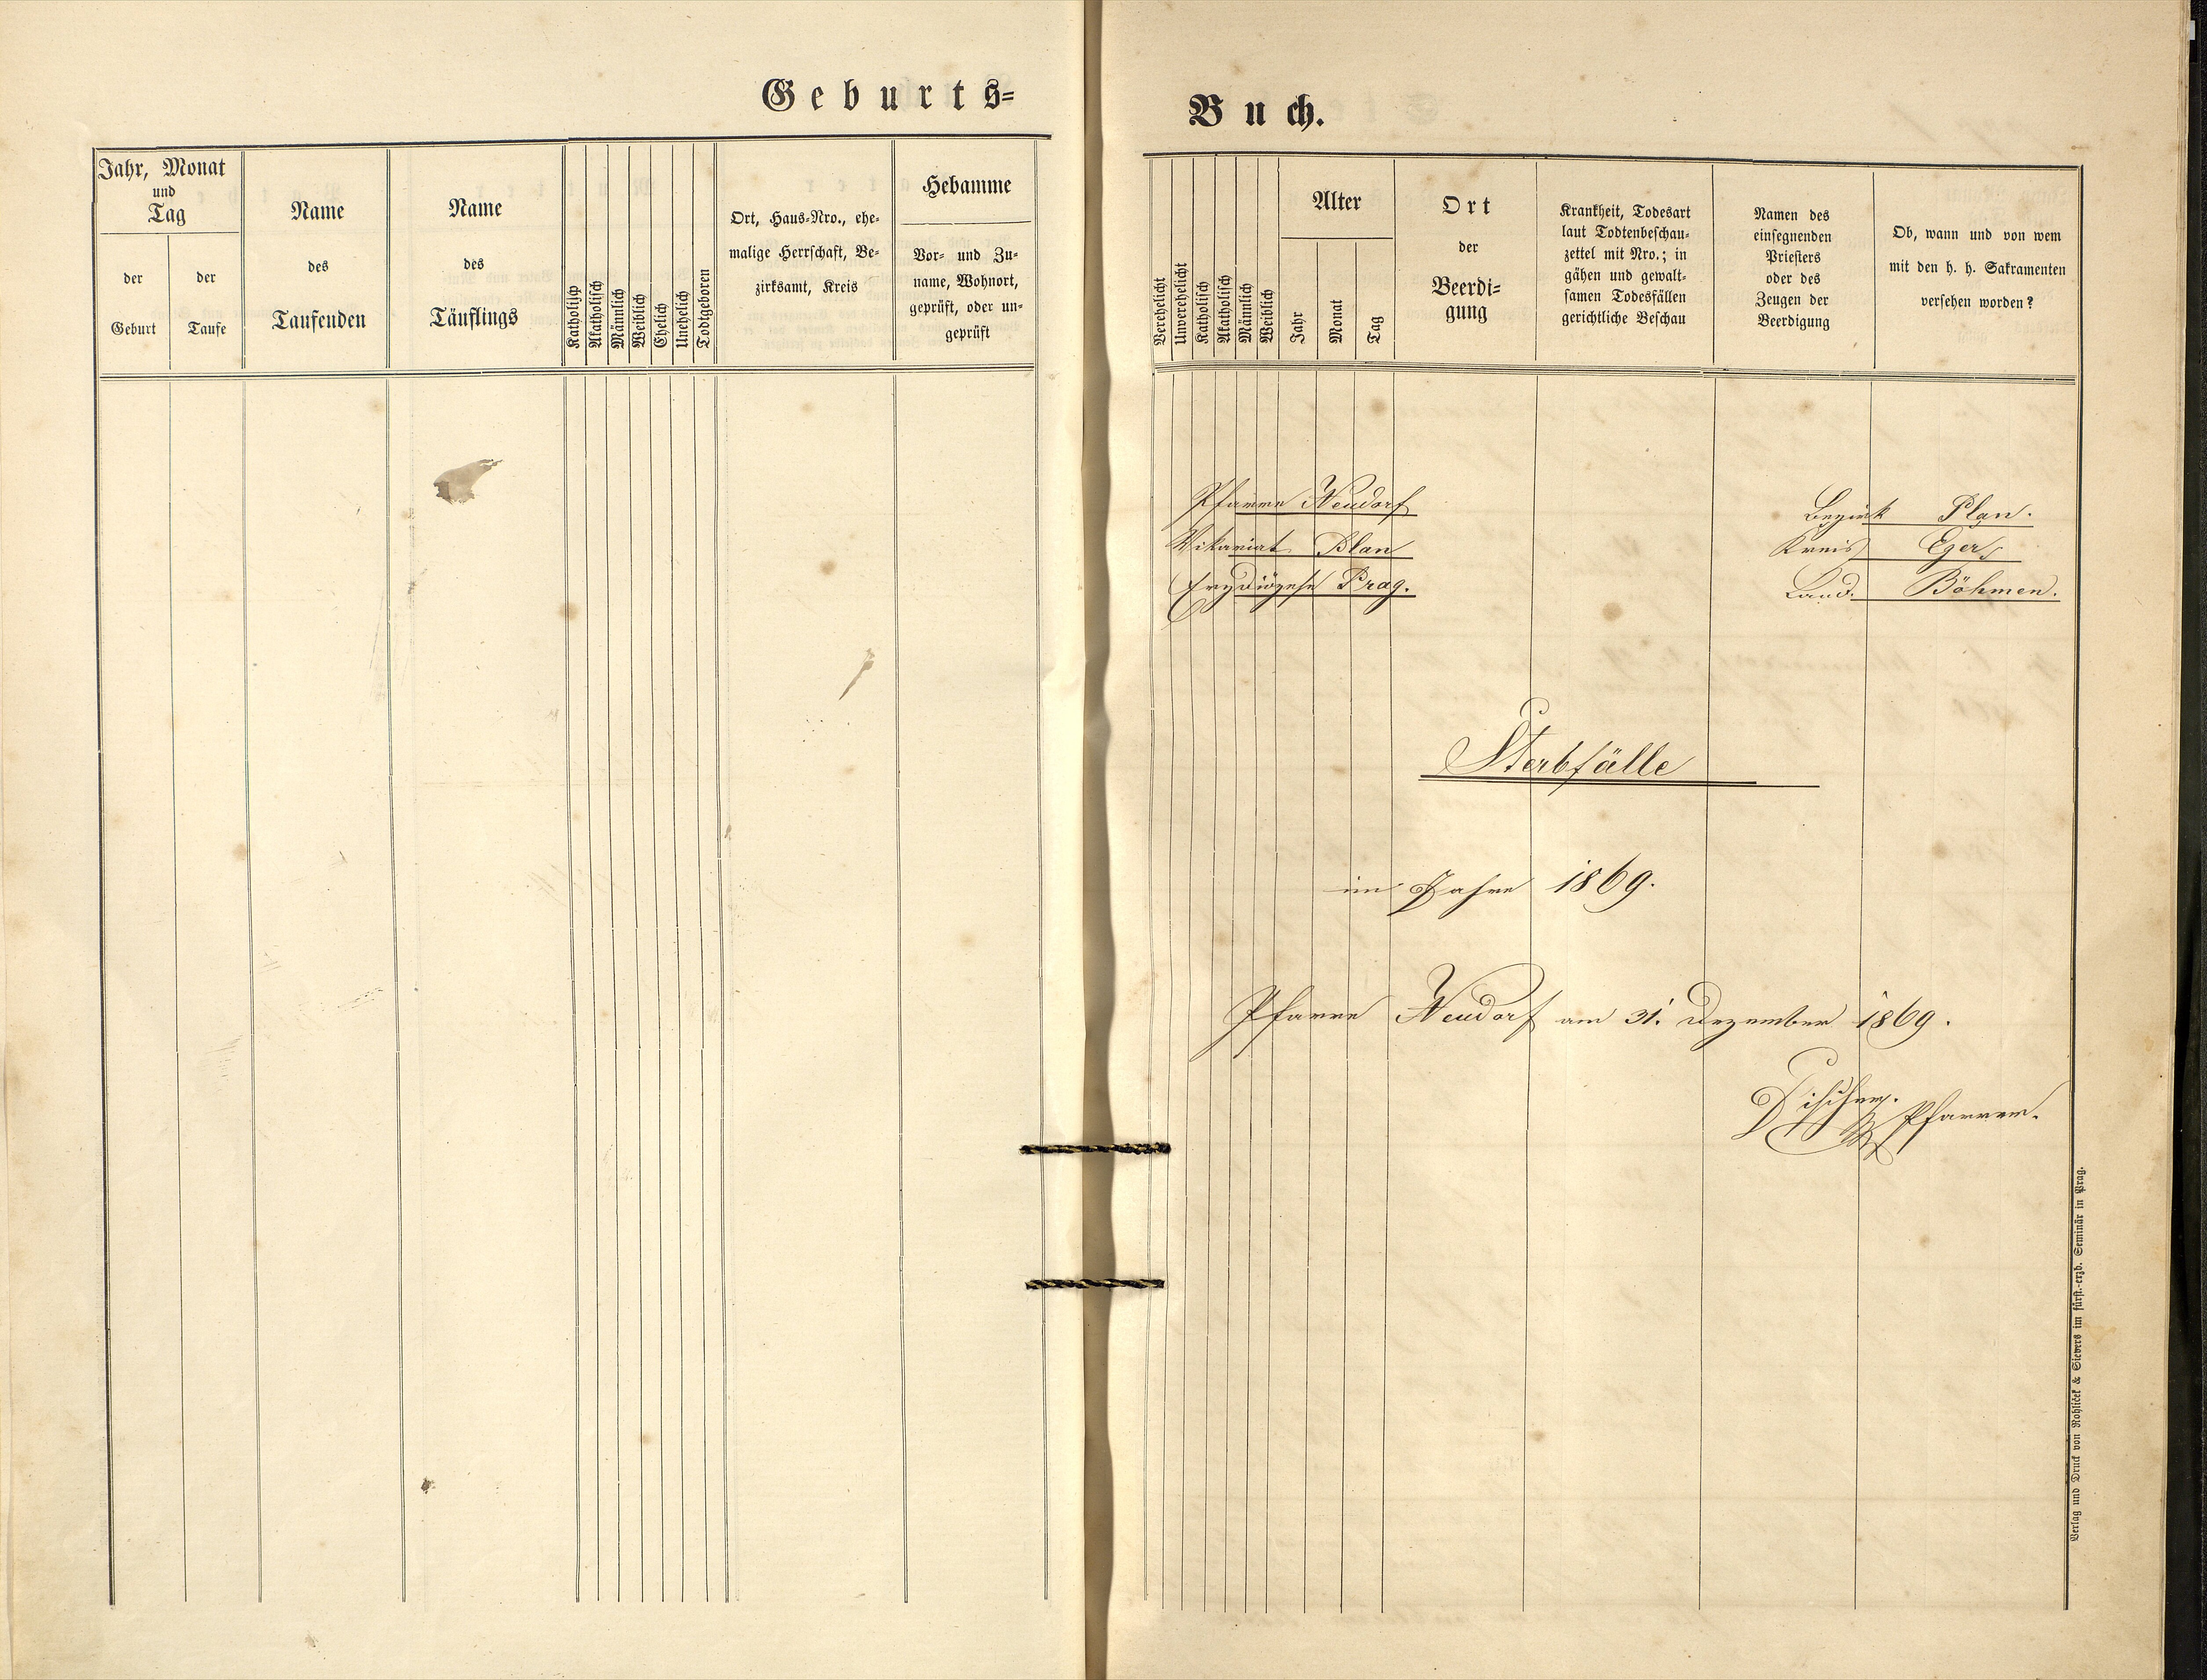 Geburts-
Jahr, Monat
und
Tag
der
Geburt
der
Taufe
Name
des
Taufenden
Name
des
Täuflings
Katholisch
Akatholisch
Männlich
Weiblich
Ehelich
Unehelich
Todtgeboren
Ort, Haus-Nro., ehe-
malige Herrschaft, Be-
zirksamt, Kreis
Hebamme
Vor- und Zu-
name, Wohnort,
geprüft, oder un-
geprüft
Buch.
Verehelicht
Unverehelicht
Katholisch
Akatholisch
Männlich
Weiblich
Alter
Jahr
Monat
Tag
Ort
der
Beerdi-
gung
Krankheit, Todesart
laut Todtenbeschau-
zettel mit Nro.; in
gähen und gewalt-
samen Todesfällen
gerichtliche Beschau
Namen des
einsegnenden
Priesters
oder des
Zeugen der
Beerdigung
Ob, wann und von wem
mit den h. h. Sakramenten
versehen worden?
Pfarre Neudorf
Vikariat Plan
Erzdiözese Prag.
Bezirk Plan.
Kreis Eger,
Land. Böhmen.
Sterbfälle
im Jahre 1869.
Pfarre Neudorf am 31. Dezember 1869.
Pfarrer.
Verlag und Druck von Rohliček & Sievers im fürst.-erzb. Seminär in Prag.